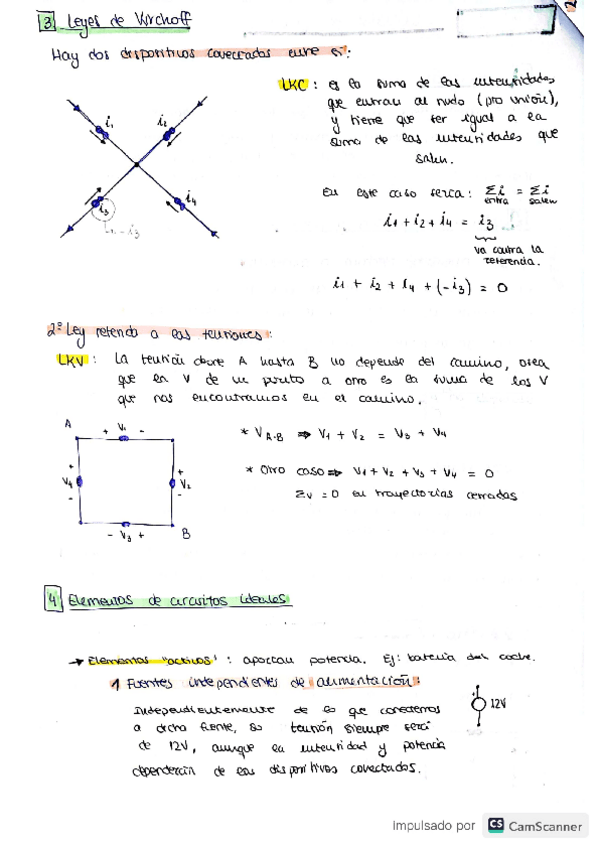 3 Leyes de Kirchoff
Hay dos dispositivos conectados entre sí:
LKC : es la suma de las intensidades
que entran al nudo (pto unión),
y tiene que ser igual a la
suma de las intensidades que
salen.
i1 i2
i3 i4
i1 - i3
En este caso sería: Σi = Σi
entra salen
i1 + i2 + i4 = i3
va contra la
referencia.
i1 + i2 + i4 + (-i3) = 0
2º Ley referida a las tensiones:
LKV : La tensión desde A hasta B no depende del camino, osea
que en V de un punto a otro es la suma de las V
que nos encontramos en el camino.
A + V1 -
+ V4 -
+ V2 -
- V3 + B
* VA-B ⇒ V1 + V2 = V3 + V4
* Otro caso ⇒ V1 + V2 + V3 + V4 = 0
Σv = 0 en trayectorias cerradas
4 Elementos de circuitos ideales
→ Elementos "activos" : aportan potencia. Ej: batería del coche.
1 Fuentes independientes de alimentación:
Independientemente de lo que conectemos
a dicha fuente, su tensión siempre será
de 12V, aunque la intensidad y potencia
dependerán de los dispositivos conectados.
+ 12V
-
Impulsado por CS CamScanner